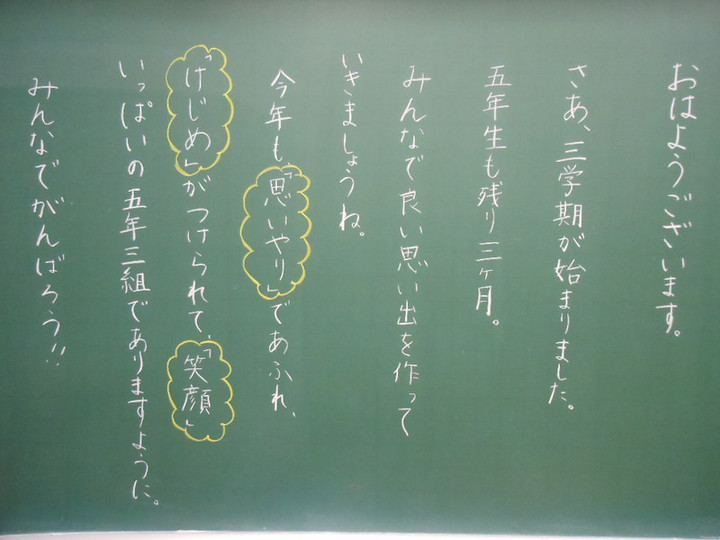 おはようございます。
さあ、三学期が始まりました。
五年生も残り三ヶ月。
みんなで良い思い出を作って
いきましょうね。
今年も、「思いやり」であふれ、
「けじめ」がつけられて、「笑顔」
いっぱいの五年三組でありますように。
みんなでがんばろう!!